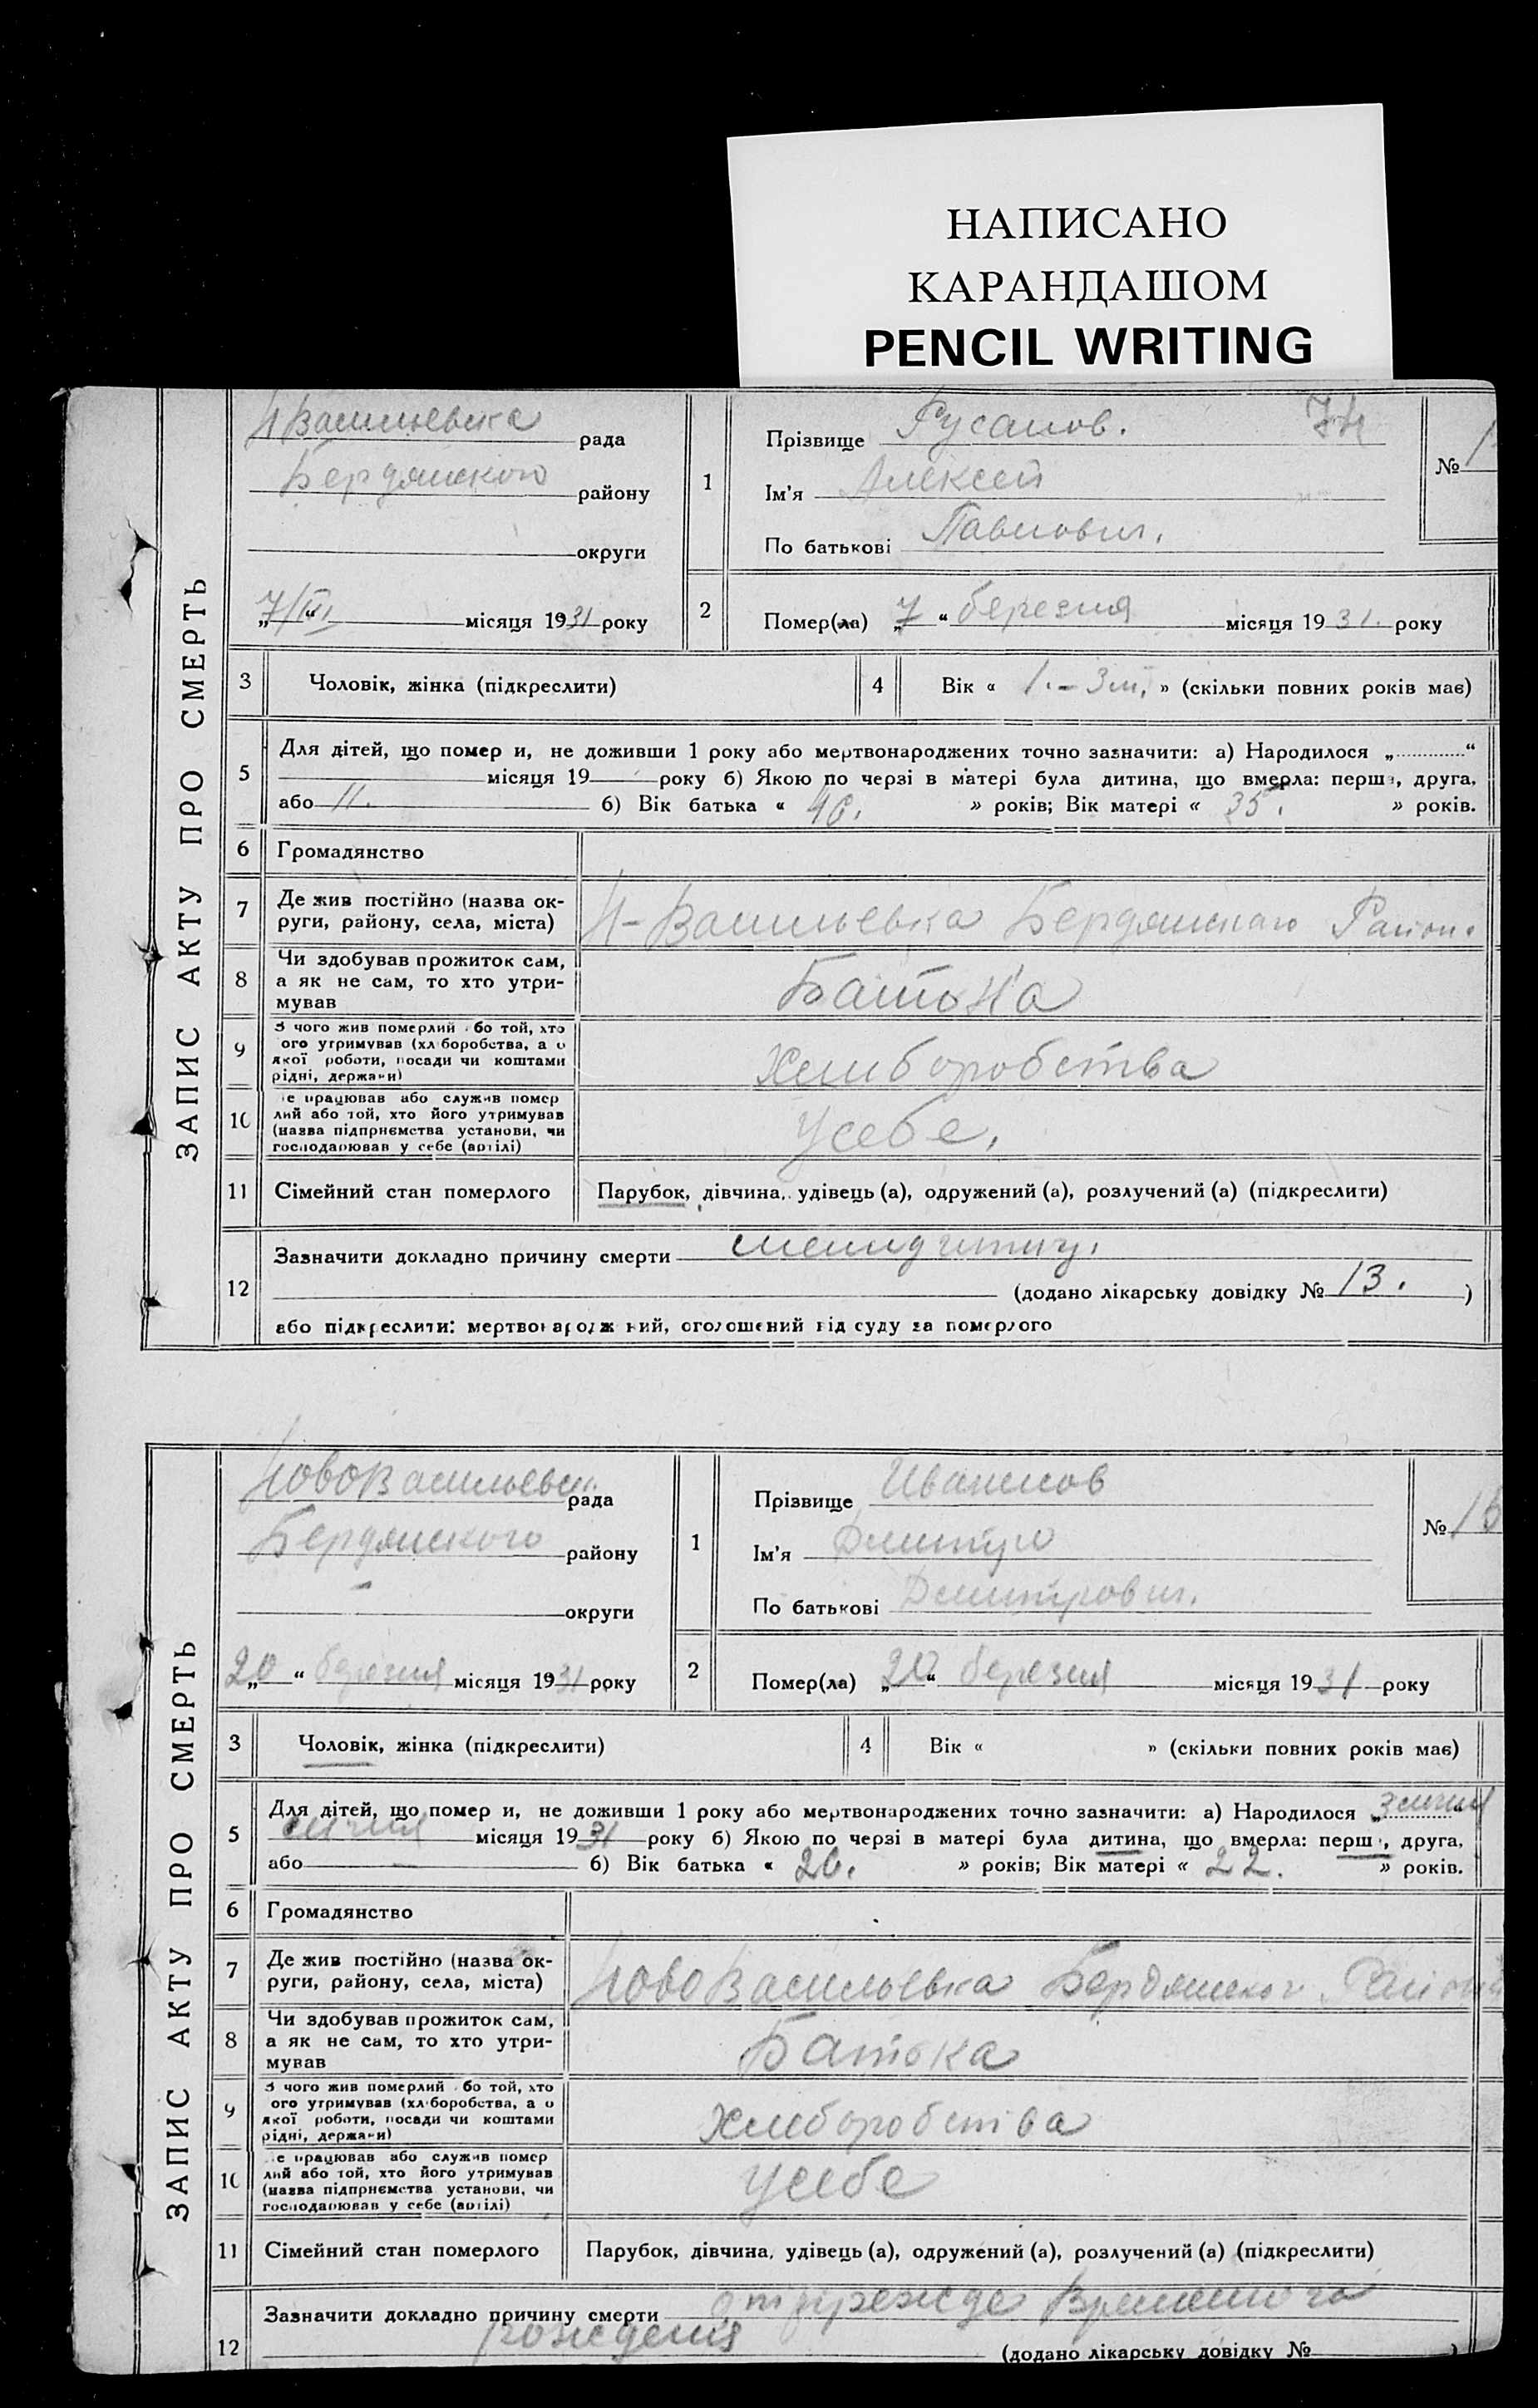 НАПИСАНО
КАРАНДАШОМ
PENCIL WRITING
ЗАПИС АКТУ ПРО СМЕРТЬ
Н Васильевка рада
Бердянского району
округи
„7/III“ місяця 1931 року
1
Прізвище Русанов.
Ім'я Алексей
По батькові Павлович.
№ 1
2
Помер(ла) „7“ березня місяця 1931. року
3 Чоловік, жінка (підкреслити)
4 Вік « 1.-3м. » (скільки повних років має)
5
Для дітей, що помер и, не доживши 1 року або мертвонароджених точно зазначити: а) Народилося „ “
місяця 19 року б) Якою по черзі в матері була дитина, що вмерла: перш, друга,
або 11. б) Вік батька « 46. » років; Вік матері « 35. » років.
6 Громадянство
7
Де жив постійно (назва ок-
руги, району, села, міста)
Н-Васильевка Бердянскаго Район.
8
Чи здобував прожиток сам,
а як не сам, то хто утри-
мував
Батька
9
З чого жив померлий бо той, хто
ого утримував (хл боробства, а о
якої роботи, посади чи коштами
рідні, держави)
Хлиборобства
10
е працював або служив помер
лий або той, хто його утримував
(назва підприємства установи, чи
господарював у себе (артілі)
Усебе.
11 Сімейний стан померлого
Парубок, дівчина, удівець (а), одружений (а), розлучений (а) (підкреслити)
12
Зазначити докладно причину смерти
(додано лікарську довідку № 13. )
або підкреслити: мертвонародж ний, оголошений від суду за померлого
ЗАПИС АКТУ ПРО СМЕРТЬ
НовоВасильевск. рада
Бердянского району
округи
„20“ березня місяця 1931 року
1
Прізвище
Ім'я Дмитро
По батькові Дмитрович.
№ 16
2
Помер(ла) „20“ березня місяця 1931 року
3 Чоловік, жінка (підкреслити)
4 Вік « » (скільки повних років має)
5
Для дітей, що помер и, не доживши 1 року або мертвонароджених точно зазначити: а) Народилося „ “
місяця 1931 року б) Якою по черзі в матері була дитина, що вмерла: перш, друга,
або б) Вік батька « 26. » років; Вік матері « 22. » років.
6 Громадянство
7
Де жив постійно (назва ок-
руги, району, села, міста)
НовоВасильевка Бердянског Район
8
Чи здобував прожиток сам,
а як не сам, то хто утри-
мував
Батька
9
З чого жив померлий бо той, хто
ого утримував (хл боробства, а о
якої роботи, посади чи коштами
рідні, держави)
Хлиборобства
10
е працював або служив помер
лий або той, хто його утримував
(назва підприємства установи, чи
господарював у себе (артілі)
Усебе
11 Сімейний стан померлого
Парубок, дівчина, удівець (а), одружений (а), розлучений (а) (підкреслити)
12
Зазначити докладно причину смерти от прежде Временного
рождения
(додано лікарську довідку № )